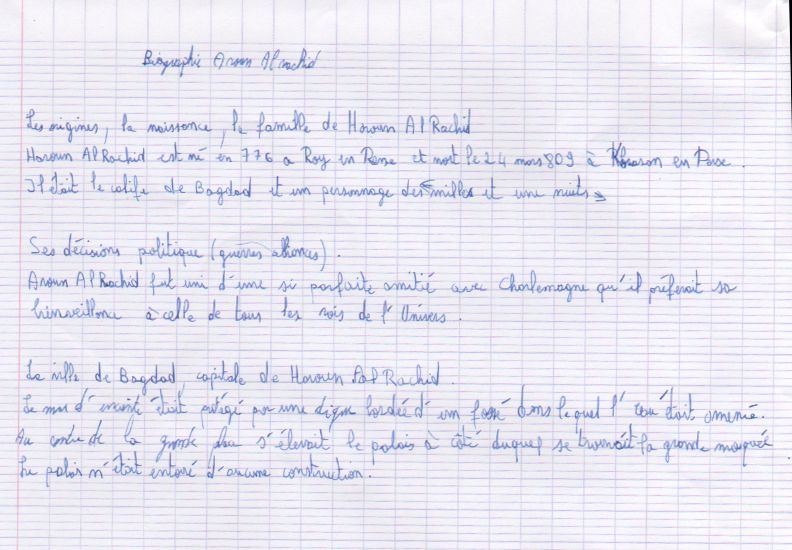 Biographie Aroun Al rachid
Les origines, la naissance, la famille de Haroun Al Rachid
Haroun Al Rachid est né en 776 a Ray en Perse et mort le 24 mars 809 à Khorasan en Perse.
Il était le calife de Bagdad et un personnage des "milles et une nuits"
Ses décisions politique (guerres alliances).
Aroun Al Rachid fut uni d'une si parfaite amitié avec Charlemagne qu'il préferait sa
bienveillance à celle de tous les rois de l'Univers.
La ville de Bagdad, capitale de Haroun Al Rachid.
Le mur d'enceinte était protégé par une digue bordée d'un fossé dans lequel l'eau était amenée.
Au centre de la grande place s'élevait le palais à côté duquel se trouvait la grande mosquée
Le palais n'était entouré d'aucune construction.